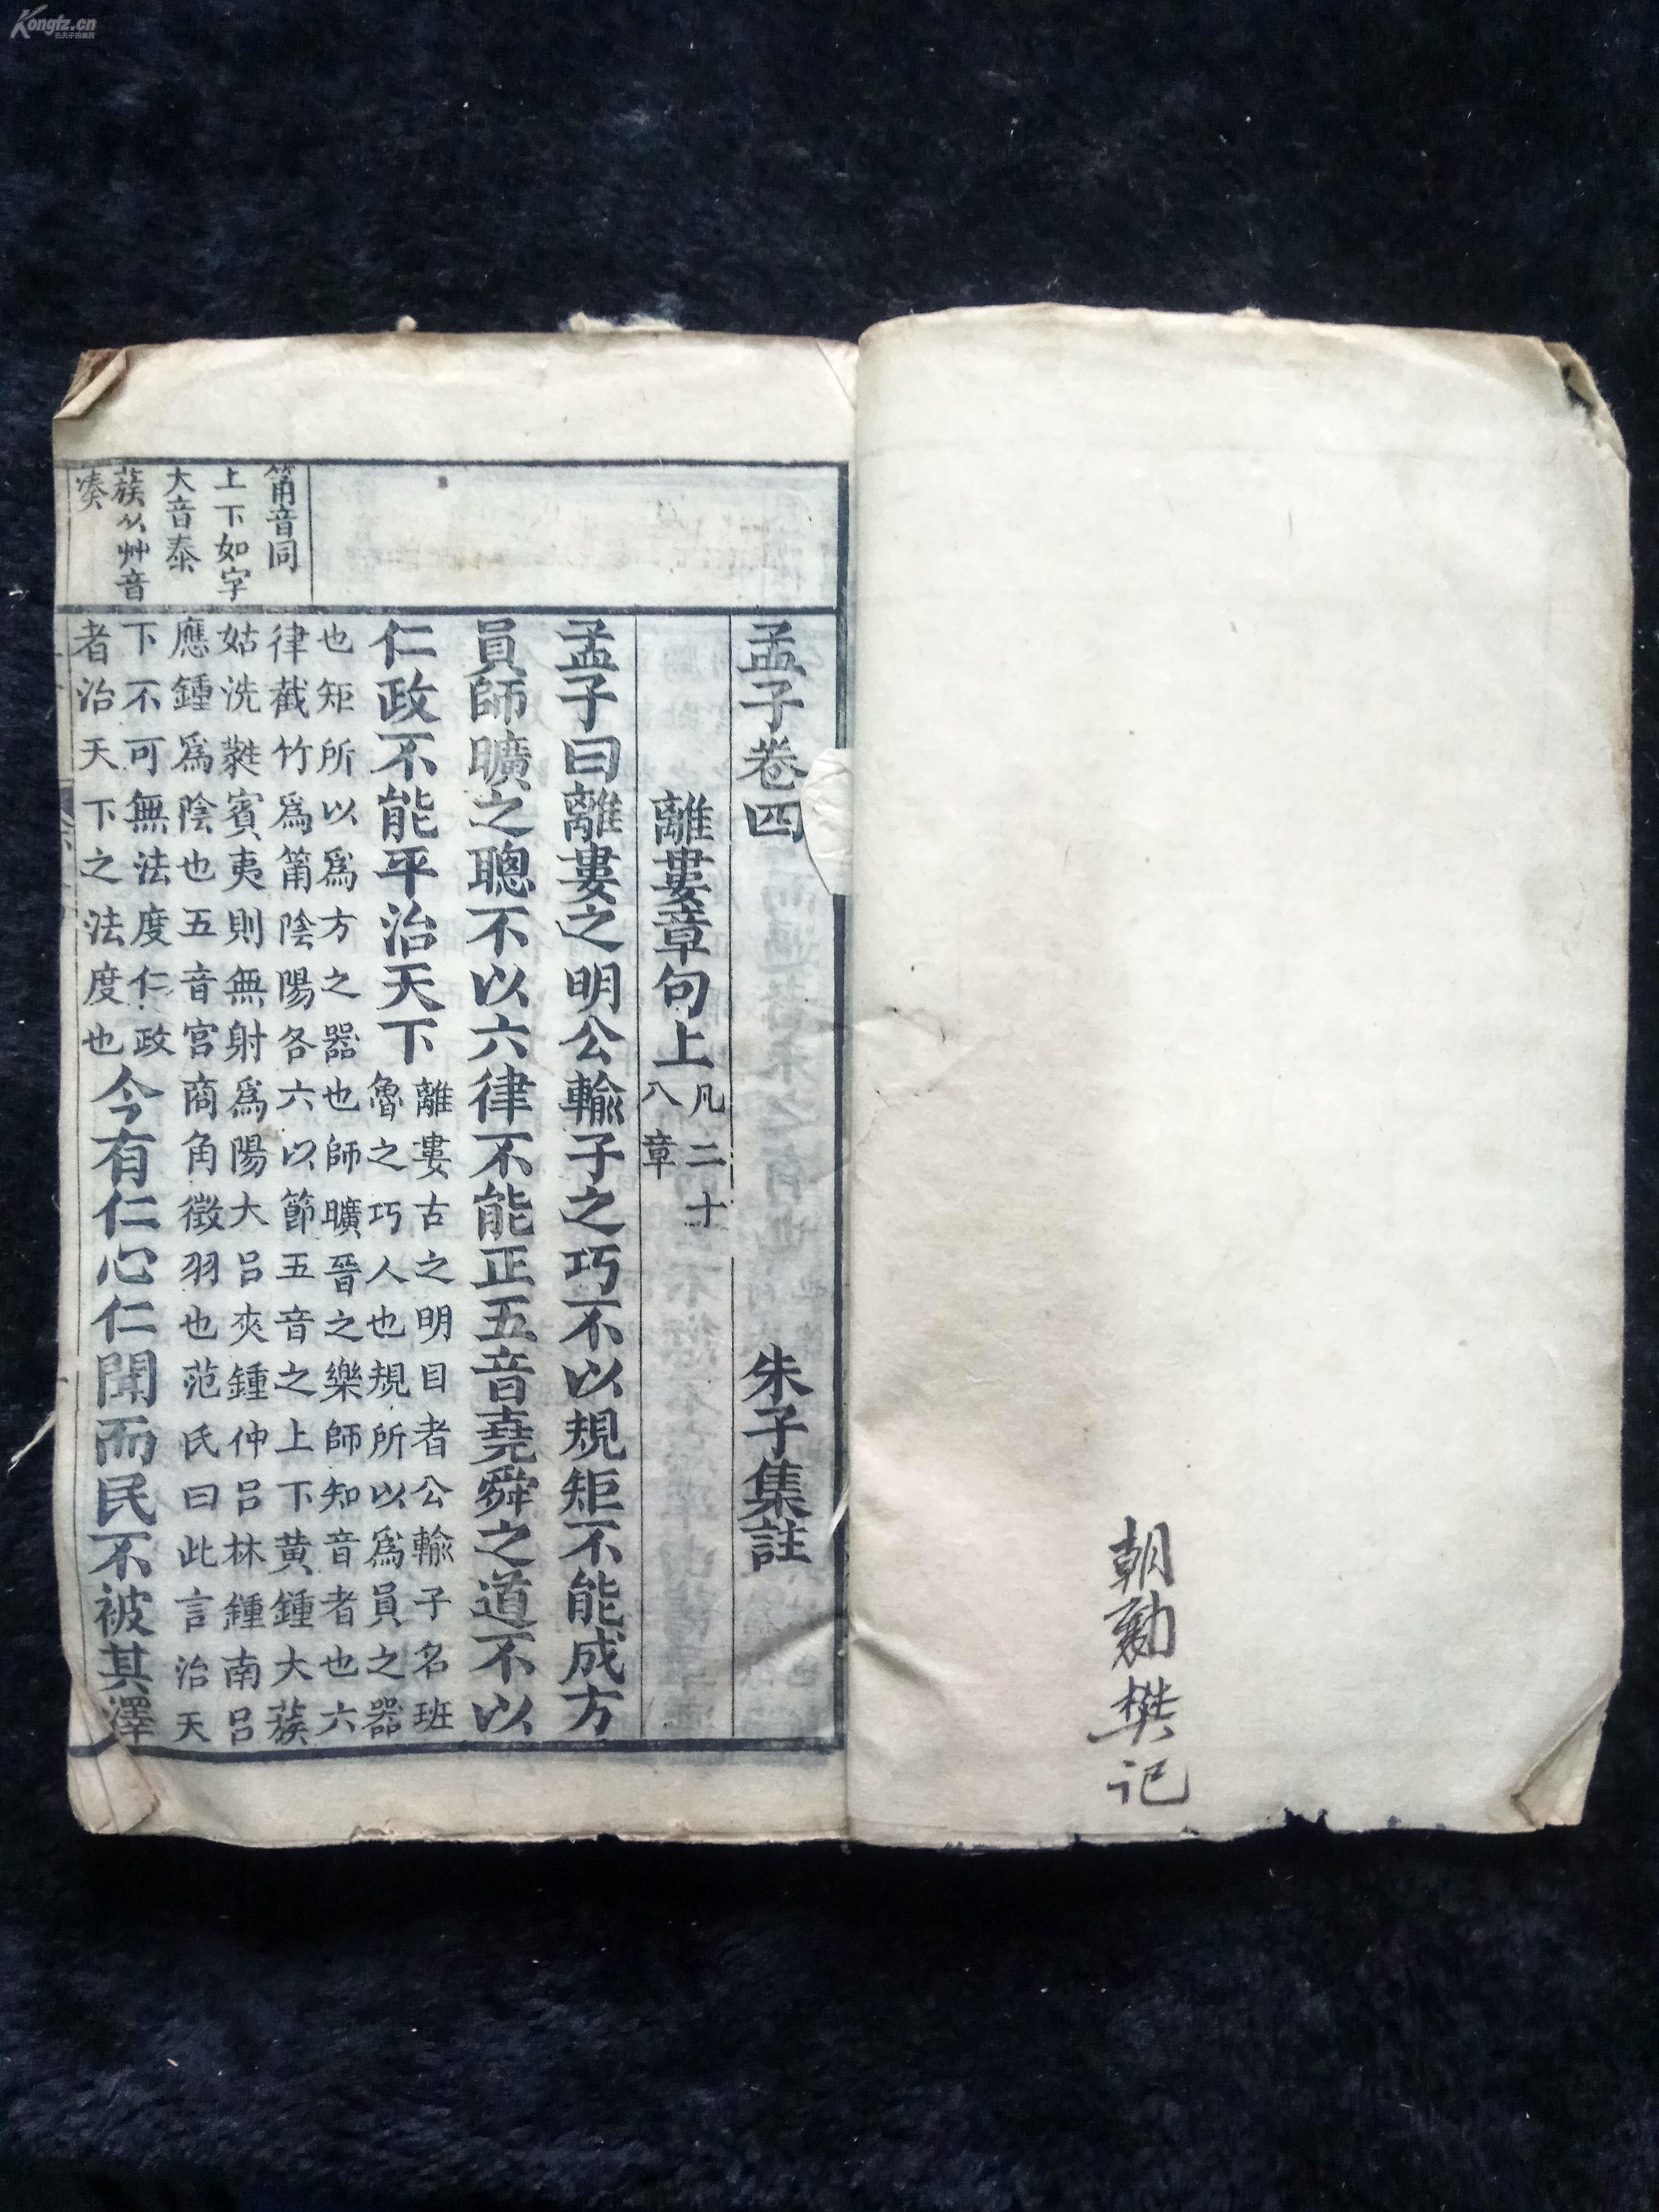 Kongfz.cn
朝勳樊記
孟子卷四 朱子集註
離婁章句上 凡二十
八章
孟子曰離婁之明公輸子之巧不以規矩不能成方
員師曠之聰不以六律不能正五音堯舜之道不以
仁政不能平治天下
離婁古之明目者公輸子名班
魯之巧人也規所以爲員之器
也矩所以爲方之器也師曠晉之樂師知音者也六
律截竹爲筩陰陽各六以節五音之上下黄鍾大蔟
姑洗蕤賓夷則無射爲陽大呂夾鍾仲呂林鍾南呂
應鍾爲陰也五音宮商角徵羽也范氏曰此言治天
下不可無法度仁政
者治天下之法度也
今有仁心仁聞而民不被其澤
筩音同
上下如字
大音泰
蔟从艸音
凑